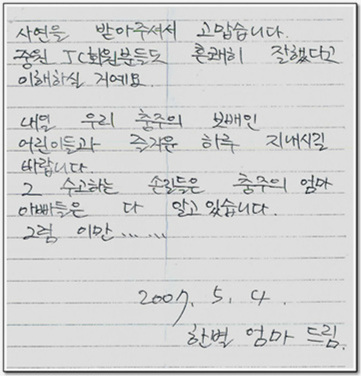 사연을 받아주셔서 고맙습니다.
중원 JC회원분들도 흔쾌히 잘했다고
이해하실 거예요.
내일 우리 충주의 보배인
어린이들과 즐거운 하루 지내시길
바랍니다.
그 수고하는 손길들은 충주의 엄마
아빠들은 다 알고 있습니다.
그럼 이만……
2007. 5. 4.
한별 엄마 드림.